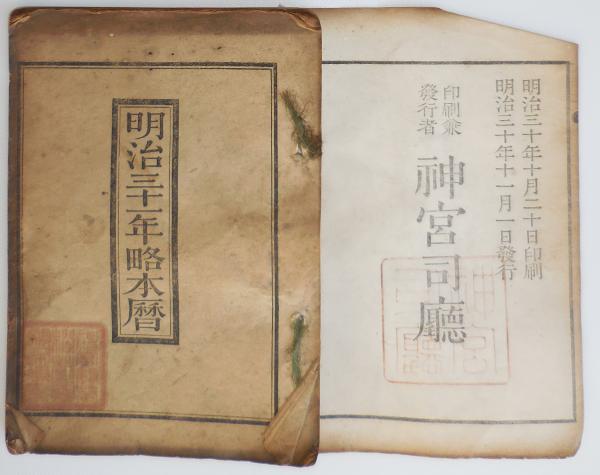 明治三十一年略本暦
明治三十年十月二十日印刷
明治三十年十一月一日發行
印刷兼
發行者
神宮司廳